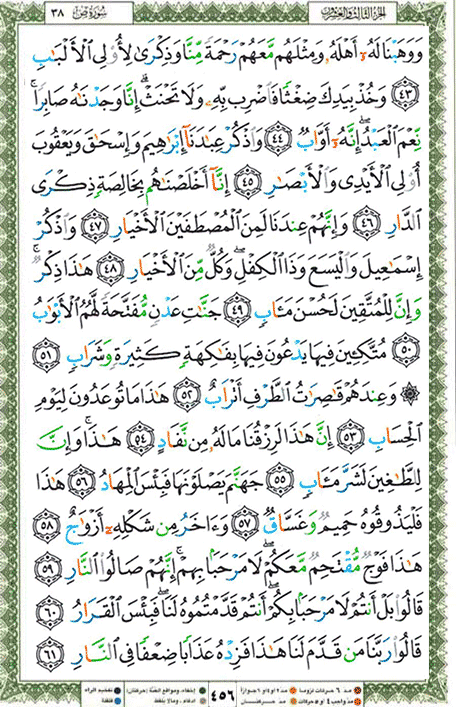 سُورَةُ صٓ ٣٨
الجزء الثالث والعشرون
وَوَهَبْنَا لَهُۥٓ أَهْلَهُۥ وَمِثْلَهُم مَّعَهُمْ رَحْمَةً مِّنَّا وَذِكْرَىٰ لِأُو۟لِى ٱلْأَلْبَٰبِ
٤٣ وَخُذْ بِيَدِكَ ضِغْثًا فَٱضْرِب بِّهِۦ وَلَا تَحْنَثْ ۗ إِنَّا وَجَدْنَٰهُ صَابِرًا ۚ
نِّعْمَ ٱلْعَبْدُ ۖ إِنَّهُۥٓ أَوَّابٌ ٤٤ وَٱذْكُرْ عِبَٰدَنَآ إِبْرَٰهِيمَ وَإِسْحَٰقَ وَيَعْقُوبَ
أُو۟لِى ٱلْأَيْدِى وَٱلْأَبْصَٰرِ ٤٥ إِنَّآ أَخْلَصْنَٰهُم بِخَالِصَةٍ ذِكْرَى
ٱلدَّارِ ٤٦ وَإِنَّهُمْ عِندَنَا لَمِنَ ٱلْمُصْطَفَيْنَ ٱلْأَخْيَارِ ٤٧ وَٱذْكُرْ
إِسْمَٰعِيلَ وَٱلْيَسَعَ وَذَا ٱلْكِفْلِ ۖ وَكُلٌّ مِّنَ ٱلْأَخْيَارِ ٤٨ هَٰذَا ذِكْرٌ ۚ
وَإِنَّ لِلْمُتَّقِينَ لَحُسْنَ مَـَٔابٍ ٤٩ جَنَّٰتِ عَدْنٍ مُّفَتَّحَةً لَّهُمُ ٱلْأَبْوَٰبُ
٥٠ مُتَّكِـِٔينَ فِيهَا يَدْعُونَ فِيهَا بِفَٰكِهَةٍ كَثِيرَةٍ وَشَرَابٍ ٥١
۞ وَعِندَهُمْ قَٰصِرَٰتُ ٱلطَّرْفِ أَتْرَابٌ ٥٢ هَٰذَا مَا تُوعَدُونَ لِيَوْمِ
ٱلْحِسَابِ ٥٣ إِنَّ هَٰذَا لَرِزْقُنَا مَا لَهُۥ مِن نَّفَادٍ ٥٤ هَٰذَا ۚ وَإِنَّ
لِلطَّٰغِينَ لَشَرَّ مَـَٔابٍ ٥٥ جَهَنَّمَ يَصْلَوْنَهَا فَبِئْسَ ٱلْمِهَادُ ٥٦ هَٰذَا
فَلْيَذُوقُوهُ حَمِيمٌ وَغَسَّاقٌ ٥٧ وَءَاخَرُ مِن شَكْلِهِۦٓ أَزْوَٰجٌ ٥٨
هَٰذَا فَوْجٌ مُّقْتَحِمٌ مَّعَكُمْ ۖ لَا مَرْحَبًۢا بِهِمْ ۚ إِنَّهُمْ صَالُوا۟ ٱلنَّارِ ٥٩
قَالُوا۟ بَلْ أَنتُمْ لَا مَرْحَبًۢا بِكُمْ ۖ أَنتُمْ قَدَّمْتُمُوهُ لَنَا ۖ فَبِئْسَ ٱلْقَرَارُ ٦٠
قَالُوا۟ رَبَّنَا مَن قَدَّمَ لَنَا هَٰذَا فَزِدْهُ عَذَابًا ضِعْفًا فِى ٱلنَّارِ ٦١
مدّ ٦ حركات لزوماً مدّ ٢ أو ٤ أو ٦ جوازاً
مدّ واجب ٤ أو ٥ حركات مدّ حركتان
٤٥٦
إخفاء، ومواقع الغنّة (حركتان) تفخيم الراء
ادغام، وما لا يلفظ قلقلة